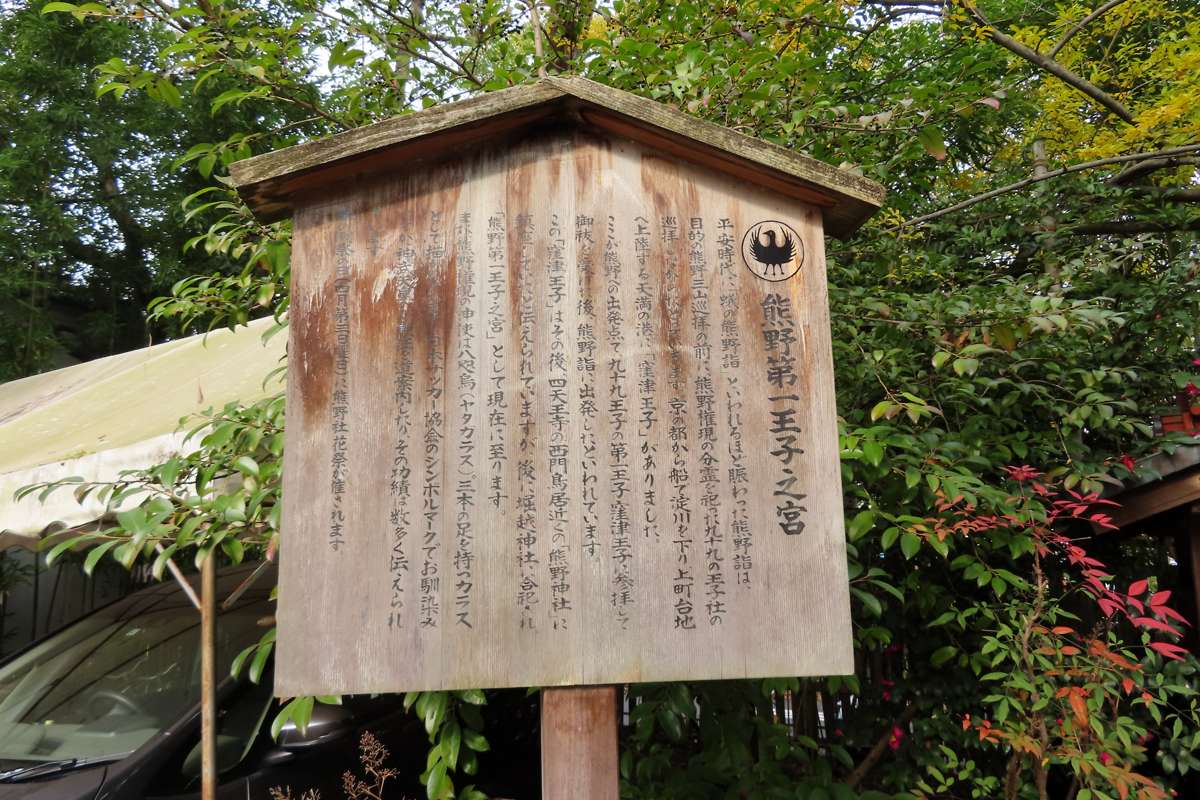 熊野第一王子之宮
平安時代、蟻の熊野詣 といわれるほど賑わった熊野詣は、
目的の熊野三山巡拝の前に、熊野権現の分霊を祀った九十九の王子社の
巡拝 ます。京の都から船で淀川を下り上町台地
へ上陸する天満の港に「窪津王子」がありました、
ここが熊野への出発点で九十九王子の第一王子窪津王子に参拝して
御祓 後、熊野詣に出発したといわれています。
この「窪津王子」はその後、四天王寺の西門鳥居近くの熊野神社に
と伝えられていますが、後に堀越神社に合祀され
「熊野第一王子之宮」として現在に至ります。
また熊野権現の神使は八咫烏(ヤタカラス)三本の足を持つカラス
サッカー協会のシンボルマークでお馴染み
神武天皇 道案内したりその功績は数多く伝えられ
月第三日曜日)に熊野社花祭が催されます